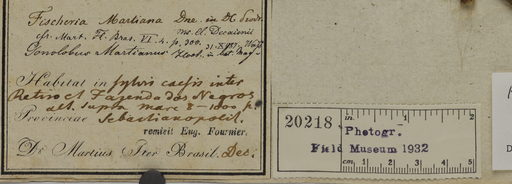 Fischeria Martiana Dne. in DC Prodr.
cfr. Mart. Fl. Bras. VI. 4. p. 300. ms. cl. Decaisnii
Gonolobus Martianus
Habitat in sylvis caesis inter
Retiro et Fazenda dos Negros
alt. supra mare 8-1000 p.
Provinciae Sebastianopolit.
remisit Eug. Fournier.
Dr Martius Iter Brasil. Dec.
20218
Photogr.
Field Museum 1932
in. 1 2
cm 1 2 3 4 5